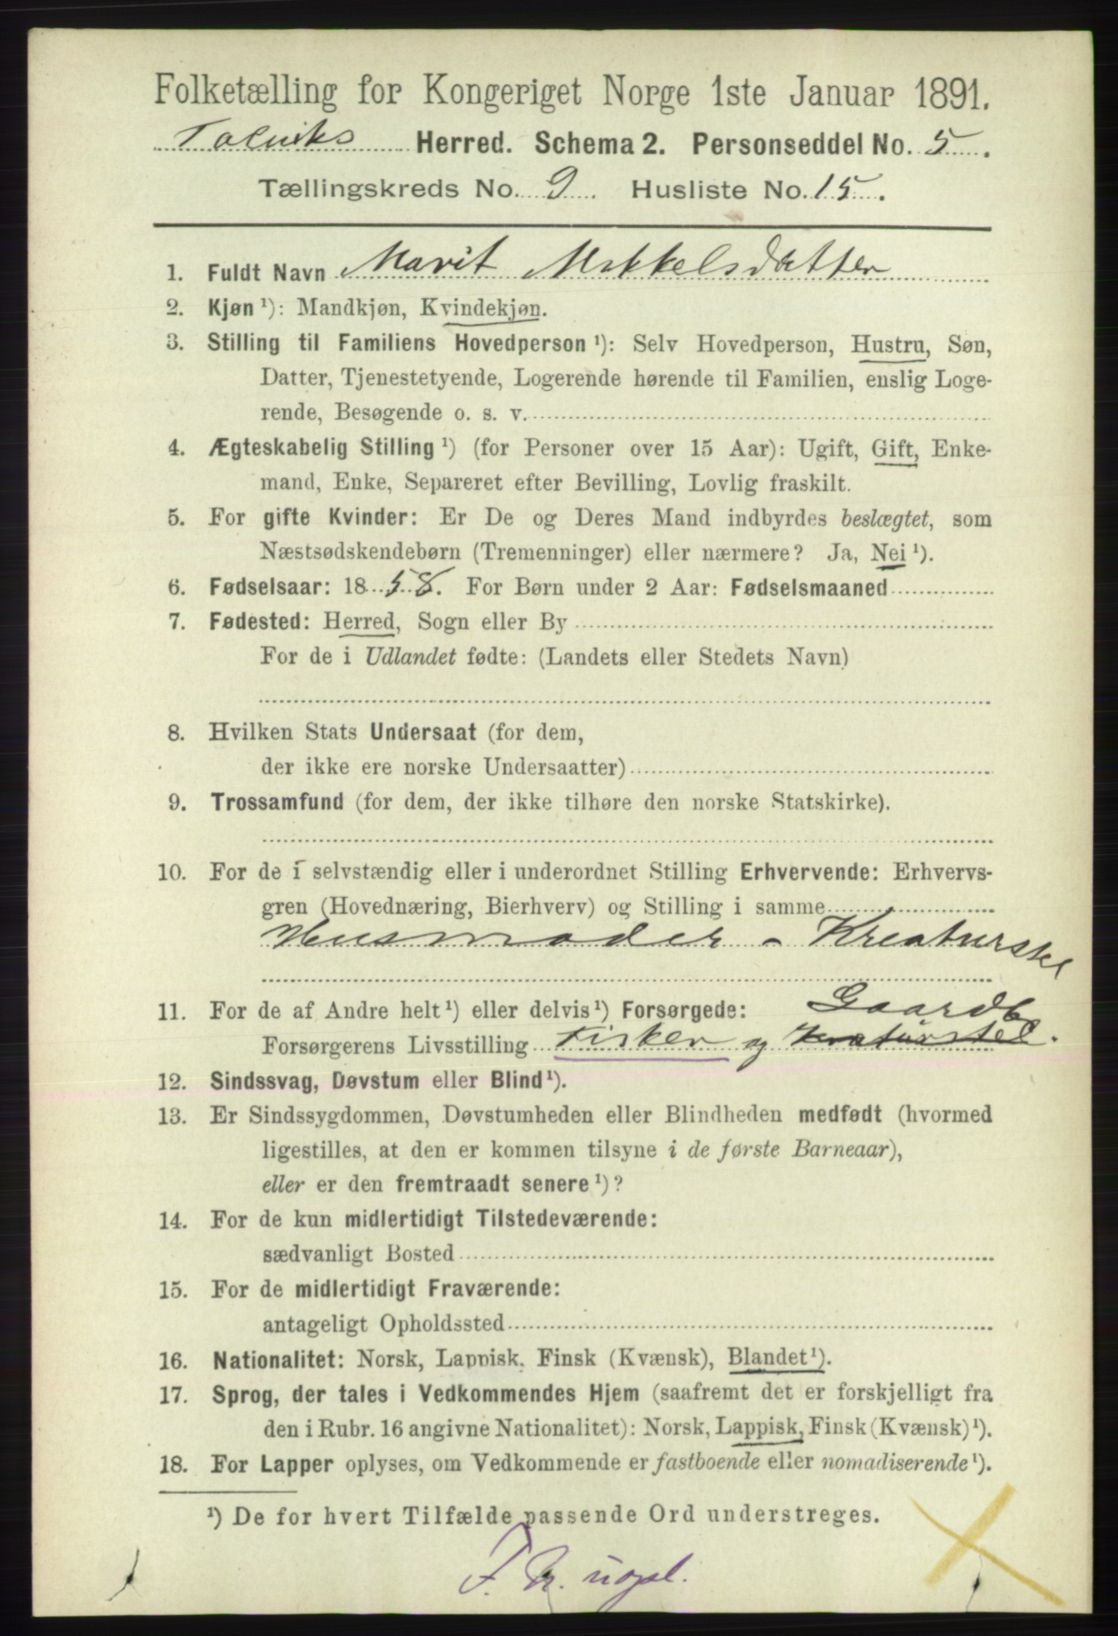 Folketælling for Kongeriget Norge 1ste Januar 1891.
Talviks Herred. Schema 2. Personseddel No. 5.
Tællingskreds No. 9. Husliste No. 15.
1. Fuldt Navn Marit Mikkelsdatter
2. Kjøn ¹): Mandkjøn, Kvindekjøn.
3. Stilling til Familiens Hovedperson ¹): Selv Hovedperson, Hustru, Søn,
Datter, Tjenestetyende, Logerende hørende til Familien, enslig Loge-
rende, Besøgende o. s. v.
4. Ægteskabelig Stilling ¹) (for Personer over 15 Aar): Ugift, Gift, Enke-
mand, Enke, Separeret efter Bevilling, Lovlig fraskilt.
5. For gifte Kvinder: Er De og Deres Mand indbyrdes beslægtet, som
Næstsødskendebørn (Tremenninger) eller nærmere? Ja, Nei ¹).
6. Fødselsaar: 1858. For Børn under 2 Aar: Fødselsmaaned
7. Fødested: Herred, Sogn eller By
For de i Udlandet fødte: (Landets eller Stedets Navn)
8. Hvilken Stats Undersaat (for dem,
der ikke ere norske Undersaatter)
9. Trossamfund (for dem, der ikke tilhøre den norske Statskirke).
10. For de i selvstændig eller i underordnet Stilling Erhvervende: Erhvervs-
gren (Hovednæring, Bierhverv) og Stilling i samme
Husmoder - Kreaturstel
11. For de af Andre helt ¹) eller delvis ¹) Forsørgede: Gaardb
Forsørgerens Livsstilling Fisker og Kreaturstel.
12. Sindssvag, Døvstum eller Blind ¹).
13. Er Sindssygdommen, Døvstumheden eller Blindheden medfødt (hvormed
ligestilles, at den er kommen tilsyne i de første Barneaar),
eller er den fremtraadt senere ¹)?
14. For de kun midlertidigt Tilstedeværende:
sædvanligt Bosted
15. For de midlertidigt Fraværende:
antageligt Opholdssted
16. Nationalitet: Norsk, Lappisk, Finsk (Kvænsk), Blandet ¹).
17. Sprog, der tales i Vedkommendes Hjem (saafremt det er forskjelligt fra
den i Rubr. 16 angivne Nationalitet): Norsk, Lappisk, Finsk (Kvænsk) ¹).
18. For Lapper oplyses, om Vedkommende er fastboende eller nomadiserende ¹).
¹) De for hvert Tilfælde passende Ord understreges.